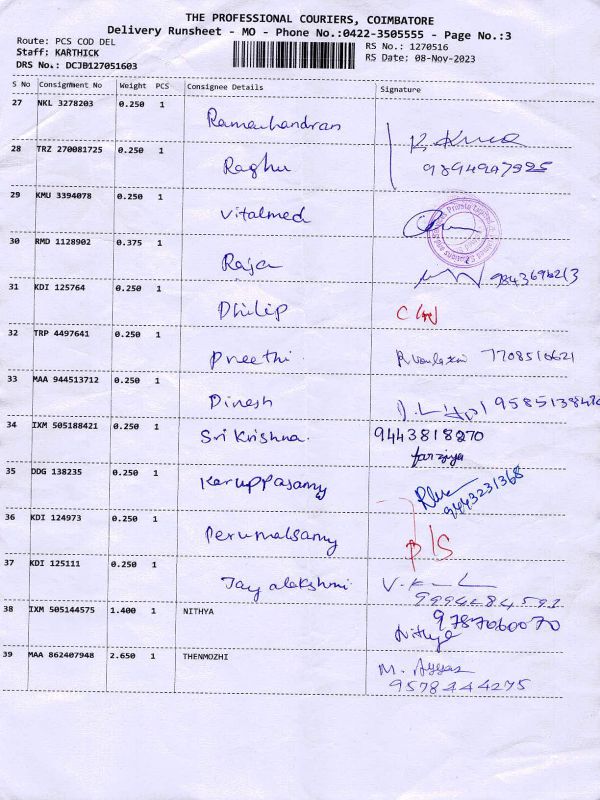 THE PROFESSIONAL COURIERS, COIMBATORE
Delivery Runsheet - MO - Phone No.:0422-3505555 - Page No.:3
Route: PCS COD DEL
RS No.: 1270516
Staff: KARTHICK
RS Date: 08-Nov-2023
DRS No.: DCJB127051603
S No Consignment No Weight PCS Consignee Details Signature
27 NKL 3278203 0.250 1 Ramachandran
28 TRZ 270081725 0.250 1 Raghu
29 KMU 3394078 0.250 1 Vitalmed
30 RMD 1128902 0.375 1 Raja
31 KDI 125764 0.250 1 Philip
32 TRP 4497641 0.250 1 Preethi 7708516621
33 MAA 944513712 0.250 1 Dinesh
34 IXM 505188421 0.250 1 Sri Krishna. 9443818270
35 DDG 138235 0.250 1 Karuppasamy 9443231368
36 KDI 124973 0.250 1 Perumalsamy
37 KDI 125111 0.250 1 Jayalakshmi
38 IXM 505144575 1.400 1 NITHYA 9787060070
Nithya
39 MAA 862407948 2.650 1 THENMOZHI M. Ayyas
9578444275